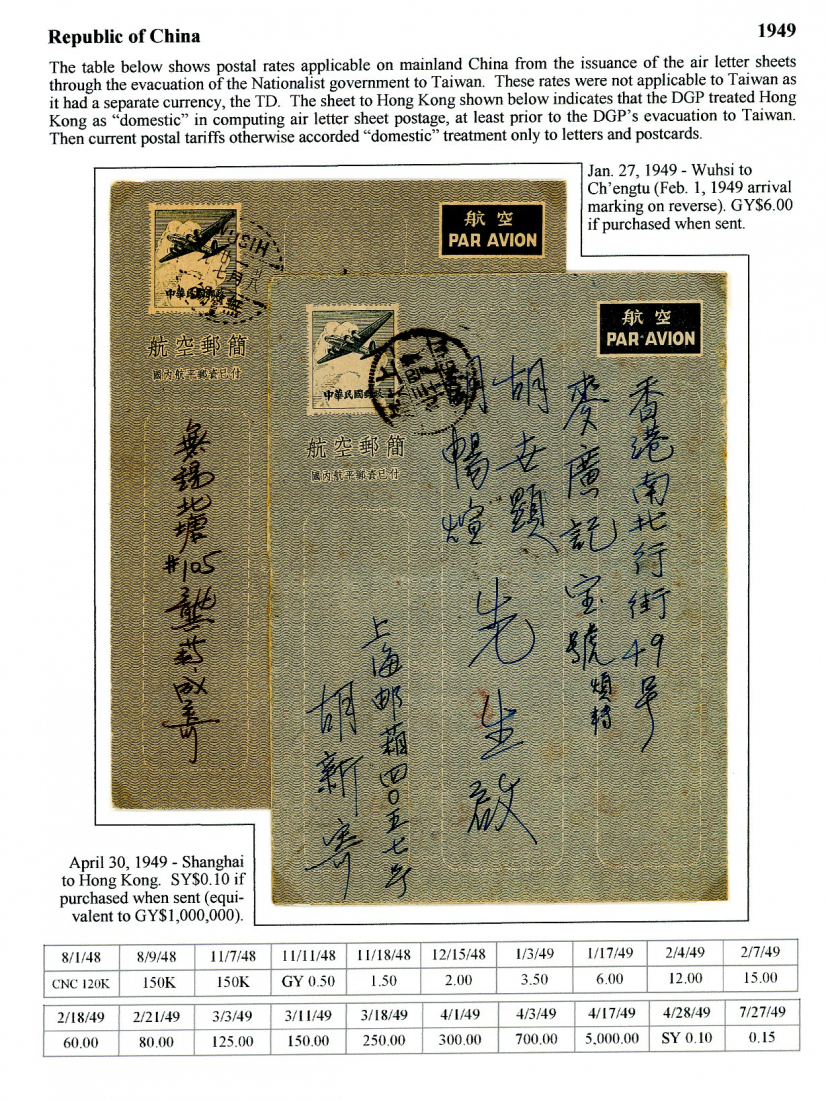 Republic of China
1949
The table below shows postal rates applicable on mainland China from the issuance of the air letter sheets
through the evacuation of the Nationalist government to Taiwan. These rates were not applicable to Taiwan as
it had a separate currency, the TD. The sheet to Hong Kong shown below indicates that the DGP treated Hong
Kong as “domestic” in computing air letter sheet postage, at least prior to the DGP’s evacuation to Taiwan.
Then current postal tariffs otherwise accorded “domestic” treatment only to letters and postcards.
Jan. 27, 1949 - Wuhsi to
Ch’engtu (Feb. 1, 1949 arrival
marking on reverse). GY$6.00
if purchased when sent.
航空
PAR AVION
航空郵簡
國內航平郵資已付
無錫北塘
#105
航空
PAR AVION
中華民國郵政
航空郵簡
國內航平郵資已付
香港南北行街49号
麥廣記宝號煩轉
胡世顯
胡暢煊
先生啟
上海邮箱四〇五七号
胡新寄
April 30, 1949 - Shanghai
to Hong Kong. SY$0.10 if
purchased when sent (equi-
valent to GY$1,000,000).
8/1/48 8/9/48 11/7/48 11/11/48 11/18/48 12/15/48 1/3/49 1/17/49 2/4/49 2/7/49
CNC 120K 150K 150K GY 0.50 1.50 2.00 3.50 6.00 12.00 15.00
2/18/49 2/21/49 3/3/49 3/11/49 3/18/49 4/1/49 4/3/49 4/17/49 4/28/49 7/27/49
60.00 80.00 125.00 150.00 250.00 300.00 700.00 5,000.00 SY 0.10 0.15